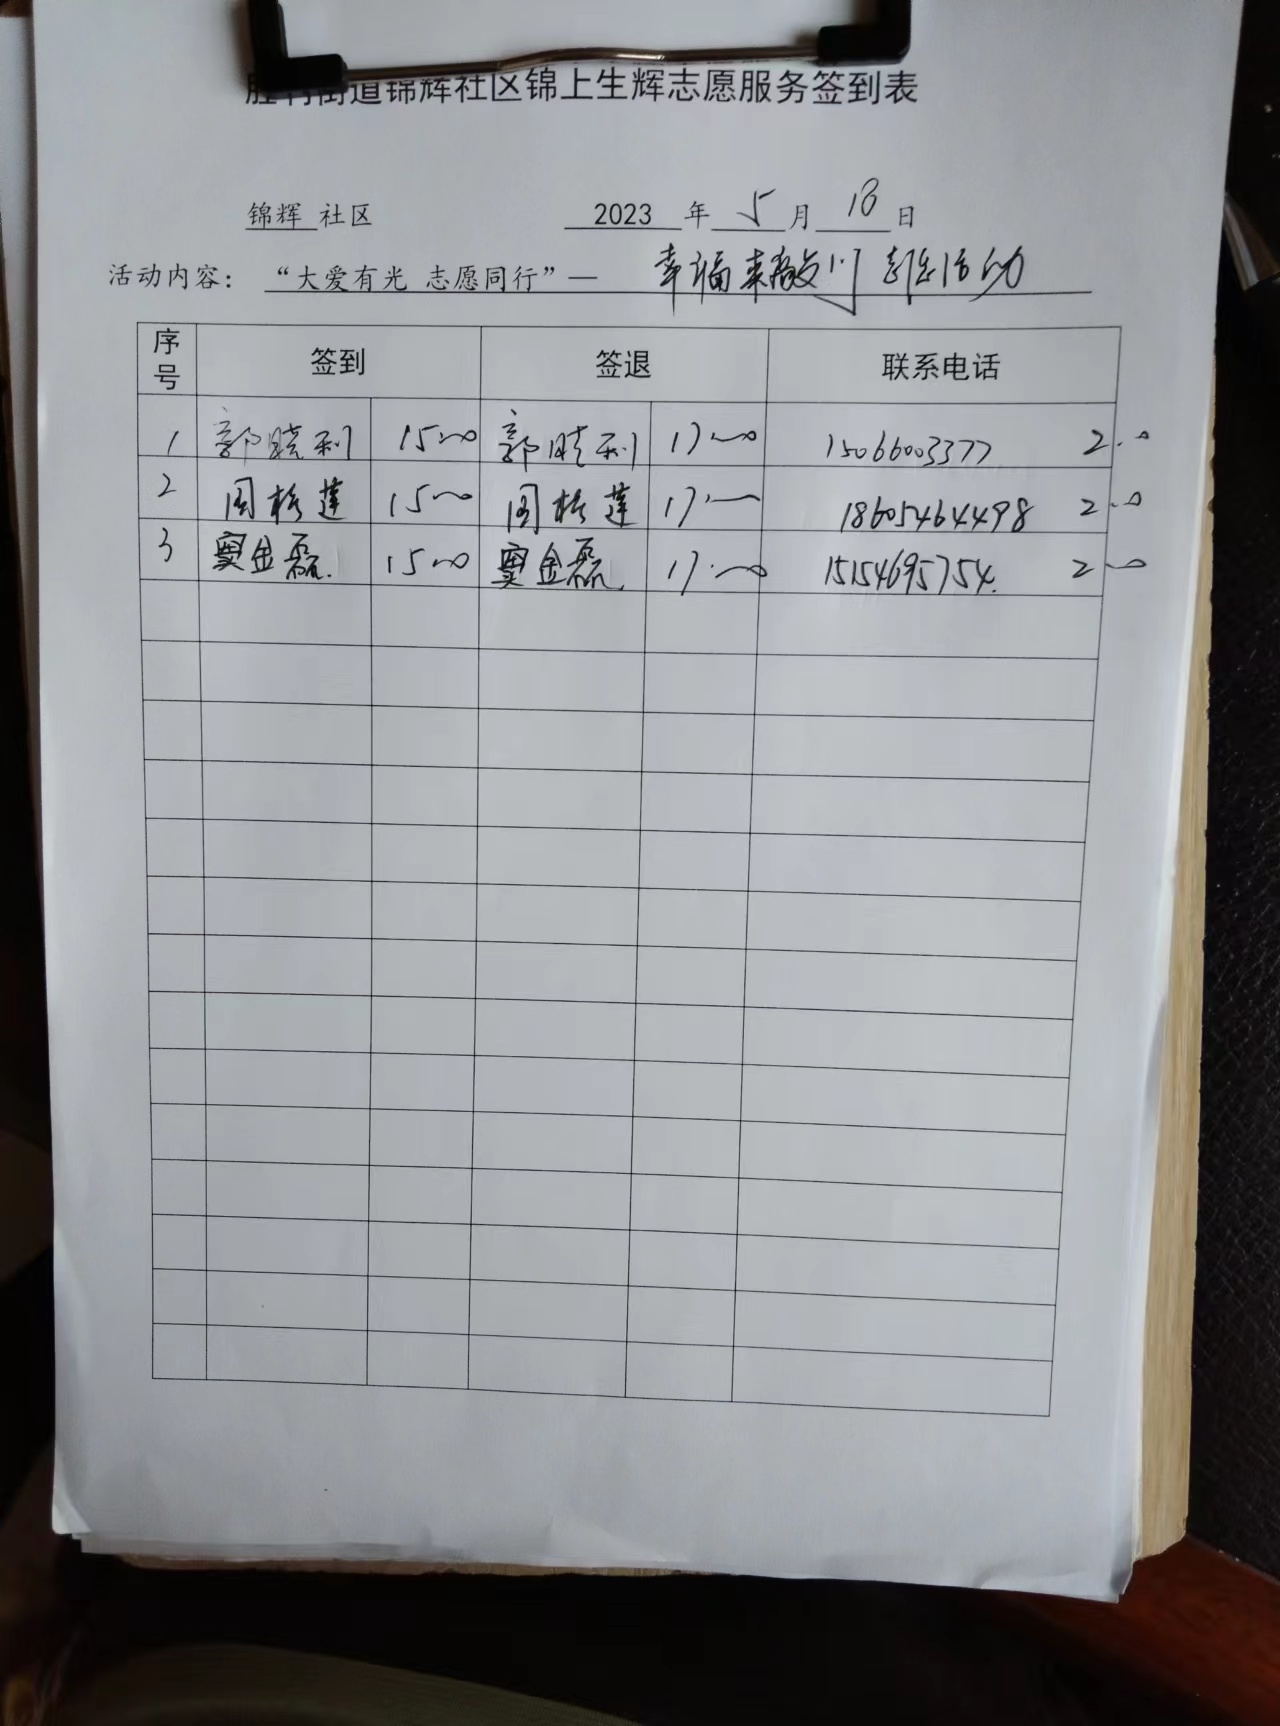 街道锦辉社区锦上生辉志愿服务签到表
锦辉 社区 2023 年 5 月 18 日
活动内容: “大爱有光 志愿同行”— 幸福来敲门 活动
序号 签到 签退 联系电话
1 郭晓利 15:00 郭晓利 17:00 15066003377 2.0
2 周 莲 15:00 周 莲 17:00 18605464498 2.0
3 窦金磊 15:00 窦金磊 17:00 15154695754 2.0